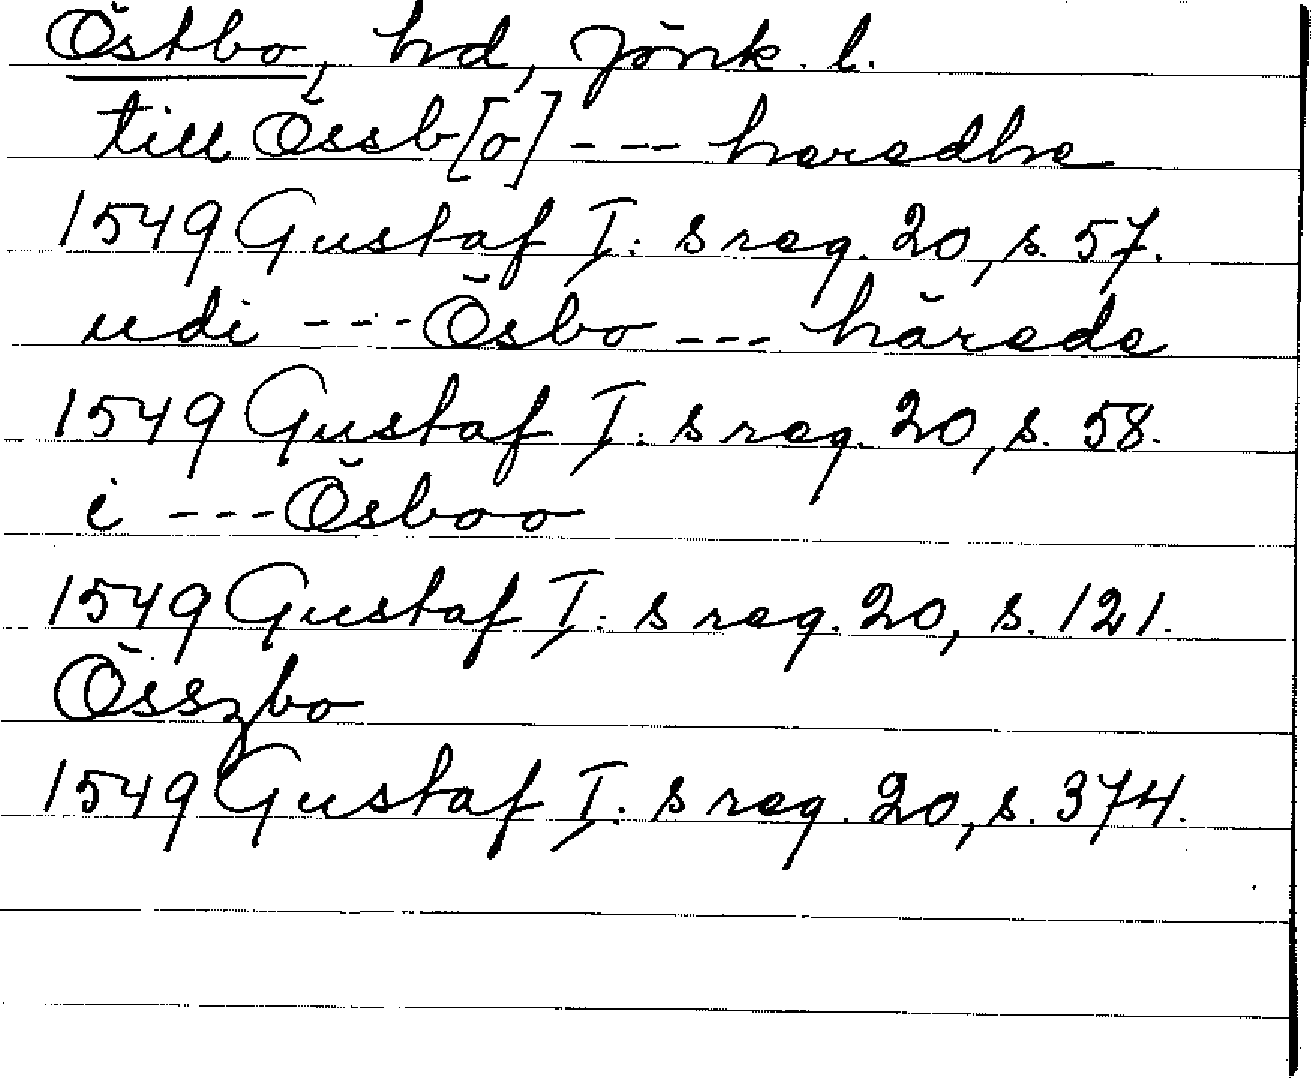 Östbo, hd, Jönk. l.
till Össb[o] --- heredhe
1549 Gustaf I:s reg. 20, s. 57.
udi --- Ösbo --- härede
1549 Gustaf I:s reg. 20, s. 58.
i --- Ösboo
1549 Gustaf I:s reg. 20, s. 121.
Összbo
1549 Gustaf I:s reg. 20, s. 374.